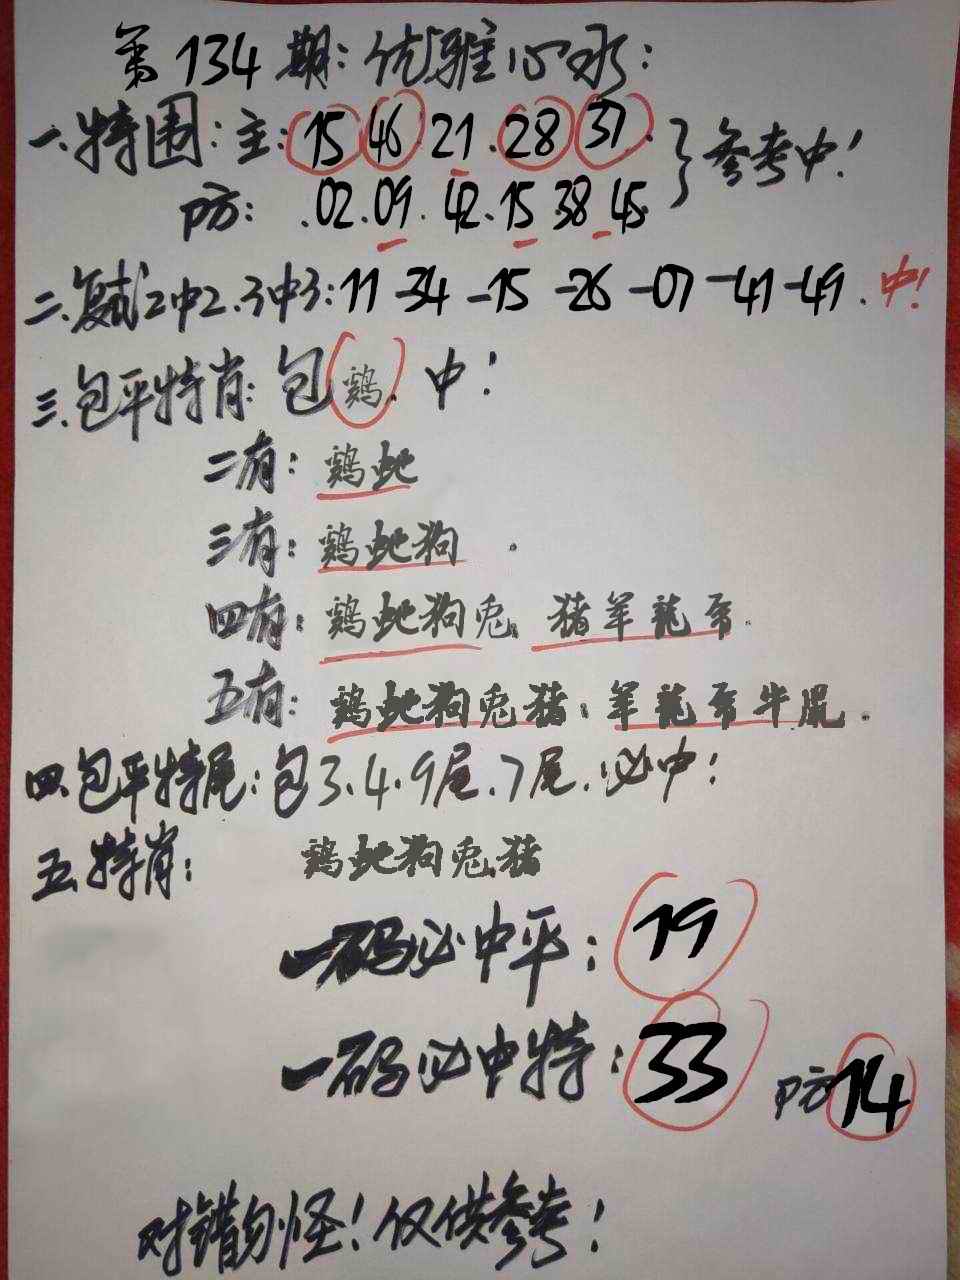 第134期:优雅心水:
一.特围:主:15 46.21.28 37.
防:.02.09.42.15.38 45.
参考中!
二.复式2中2.3中3:11-34-15-26-07-41-49.中!
三.包平特肖:包鸡.中!
二有:鸡蛇
三有:鸡蛇狗.
四有:鸡蛇狗兔.猪羊龙虎.
五有:鸡蛇狗兔猪:羊龙虎牛鼠.
四.包平特尾:包3.4.9尾.7尾.必中!
五.特肖:鸡蛇狗兔猪
一码必中平:19
一码必中特:33 防14
对错勿怪!仅供参考!